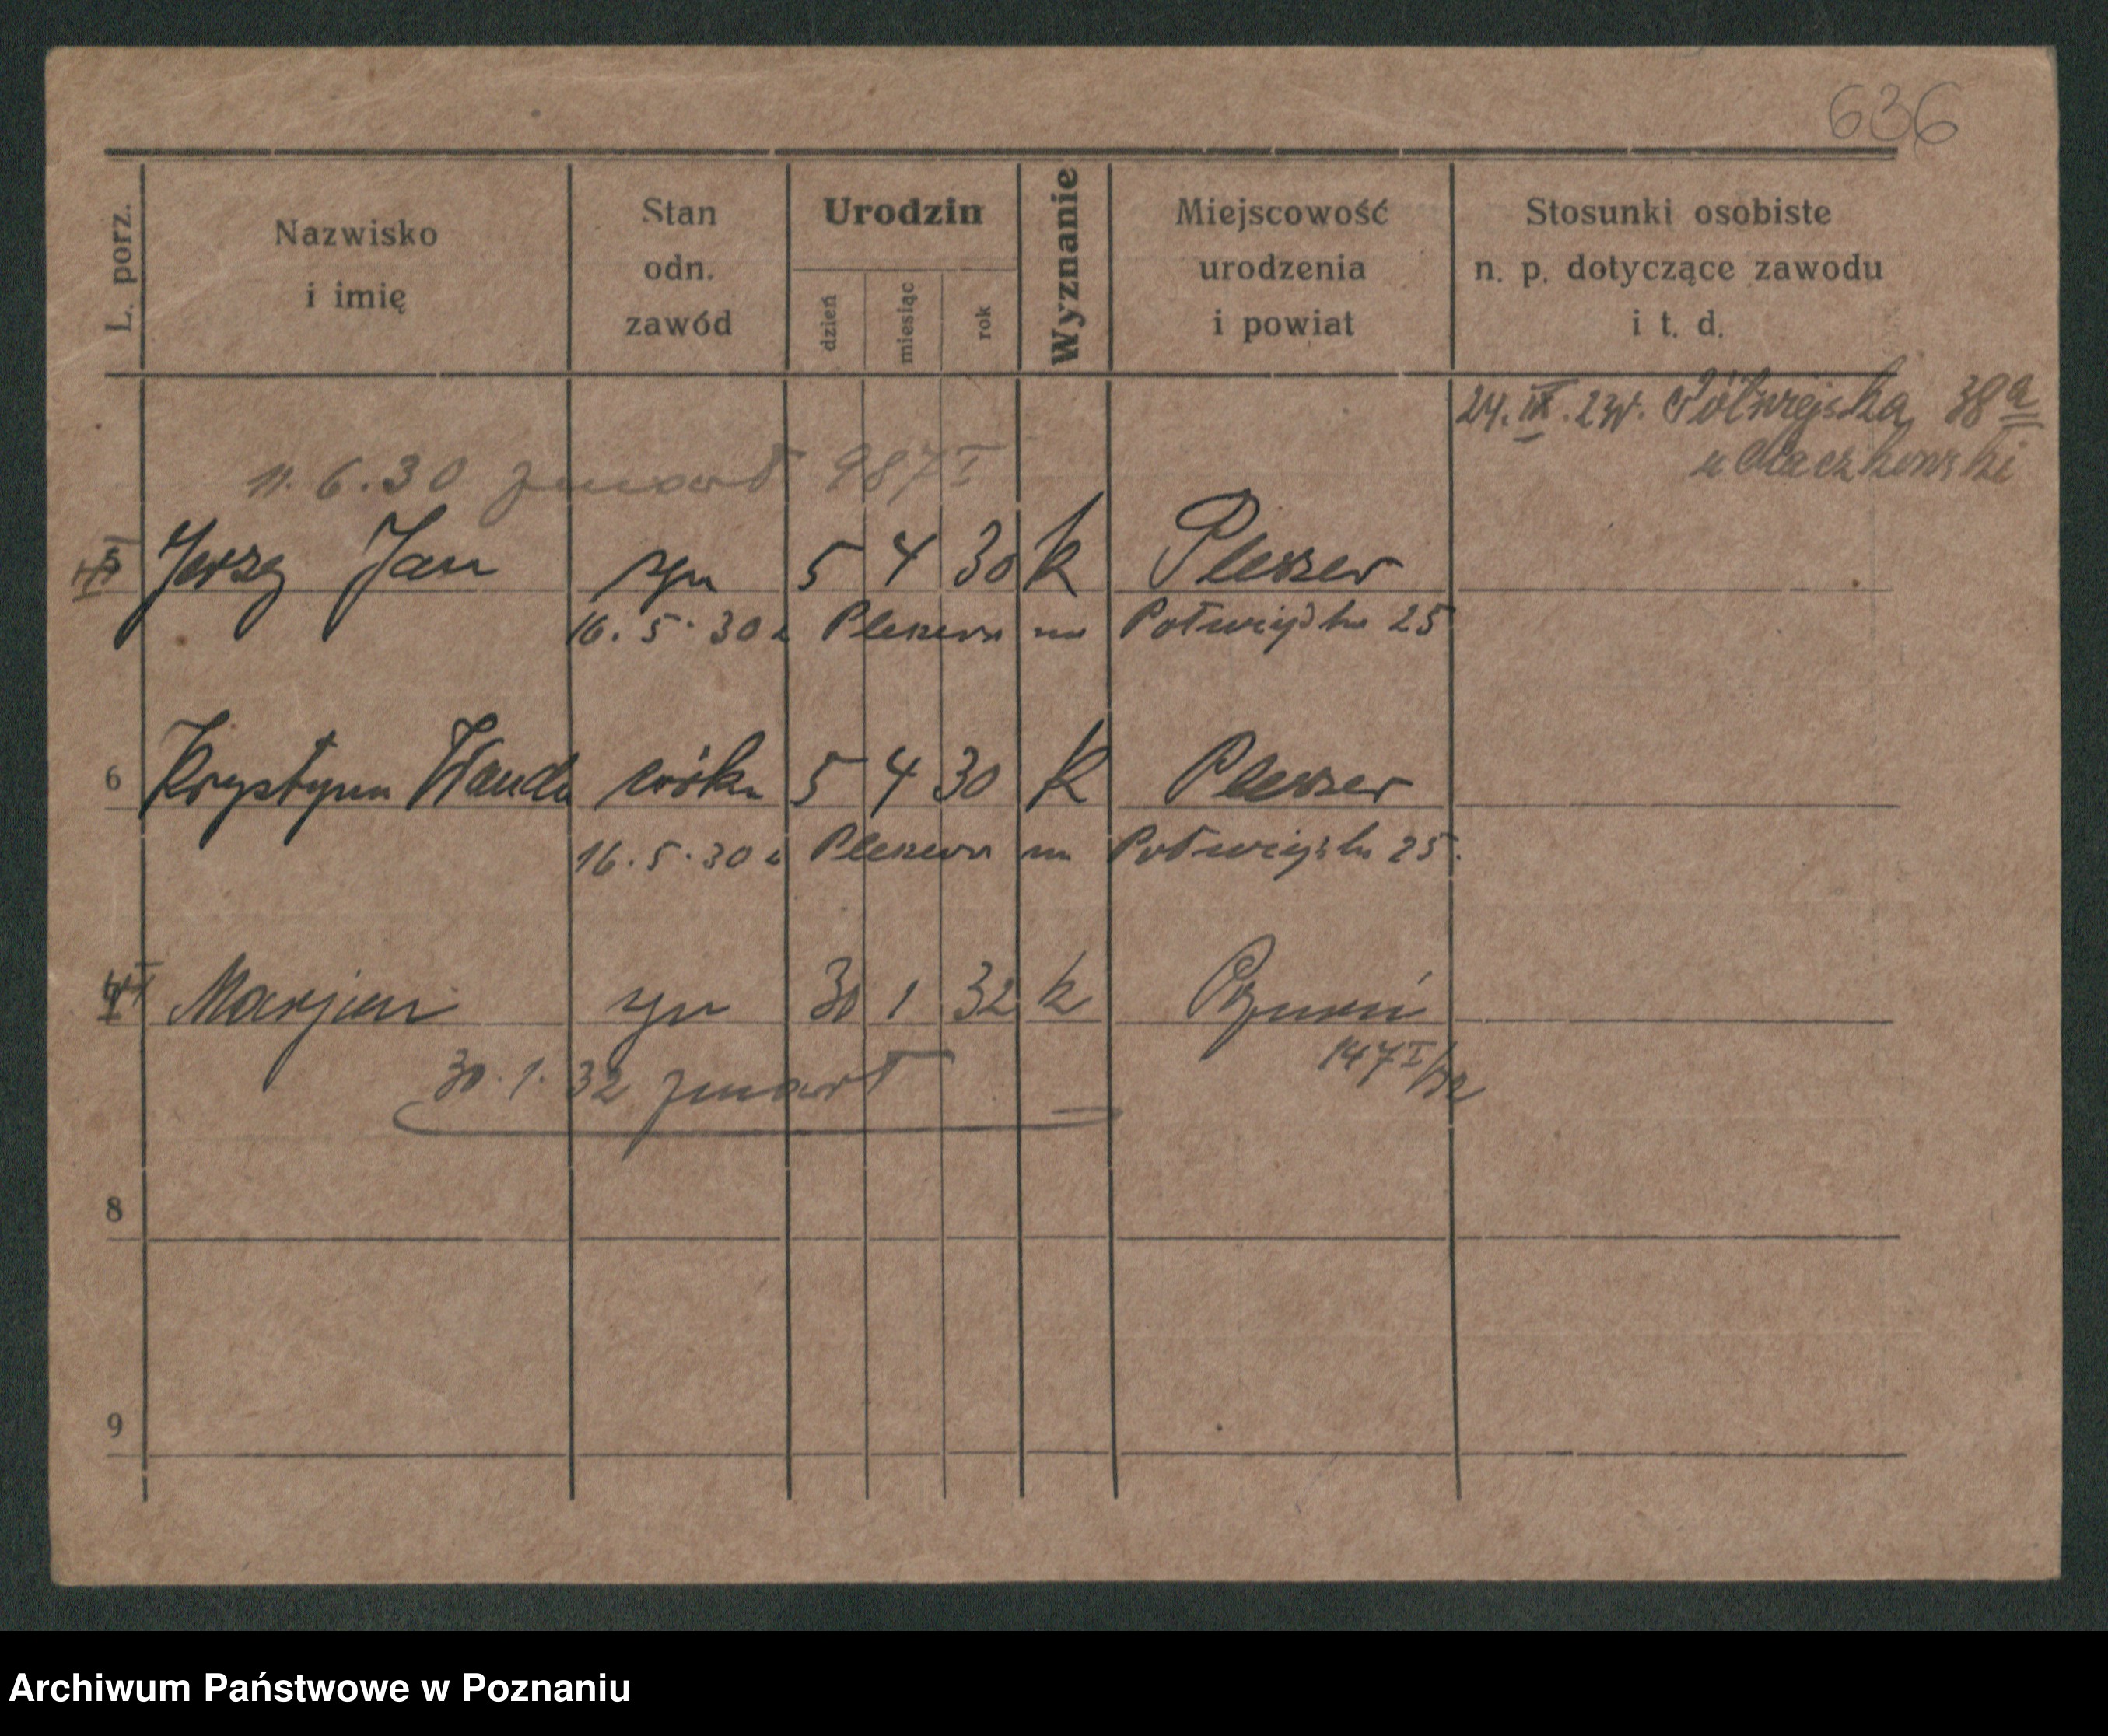 636
L. porz.
Nazwisko
i imię
Stan
odn.
zawód
Urodzin
dzień
miesiąc
rok
Wyznanie
Miejscowość
urodzenia
i powiat
Stosunki osobiste
n. p. dotyczące zawodu
i t. d.
24. IX. 23r. Półwiejska 38a
u Maczkowski
11. 6. 30 zmarł 987 I
5 Jerzy Jan syn 5 4 30 k Pleszew
16. 5. 30 z Pleszewa na Półwiejska 25
6 Krystyna Wanda córka 5 4 30 k Pleszew
16. 5. 30 z Pleszewa na Półwiejska 25.
Marjan syn 30 1 32 k Poznań
30. 1. 32 zmarł 147 I/32
8
9
Archiwum Państwowe w Poznaniu